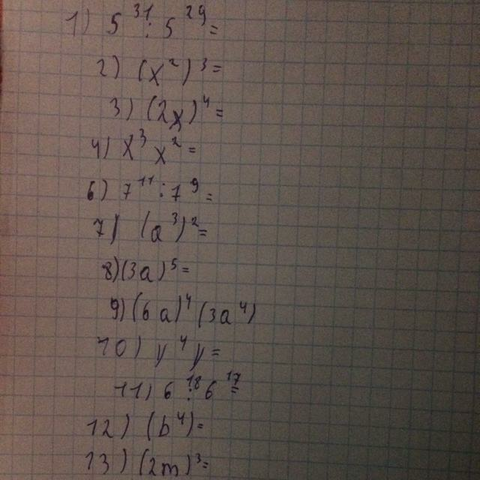 1) 5³¹ : 5²⁹ =
2) (x²)³ =
3) (2x)⁴ =
4) x³ x² =
6) 7¹¹ : 7⁹ =
7) (a³)² =
8) (3a)⁵ =
9) (6a)⁴ (3a⁴)
10) y⁴ y =
11) 6¹⁸ : 6¹⁷ =
12) (b⁴) =
13) (2m)³ =